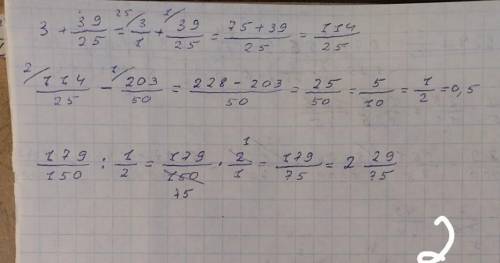 3 + 39/25 = 25/ 3/1 + 1/ 39/25 = 75+39/25 = 114/25
2/ 114/25 - 1/ 203/50 = 228-203/50 = 25/50 = 5/10 = 1/2 = 0,5
179/150 : 1/2 = 179/150 75 · 2/1 1 = 179/75 = 2 29/75
2